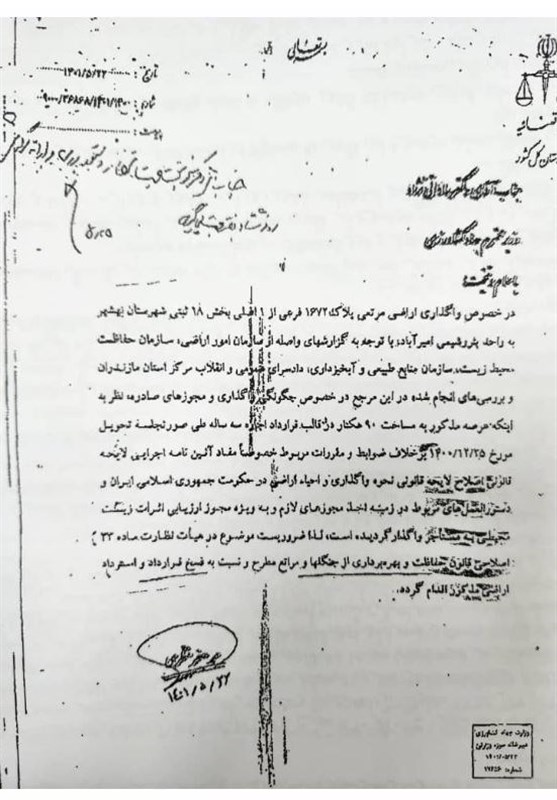 بسمه تعالی
تاریخ : ۱۴۰۱/۵/۲۲
شماره : ۹۰۰۰/۲۶۸۶۸/۱۴۰۱/۱۴۰
پیوست :
قضائیه
دادستان کل کشور
جناب آقای دکتر ساداتی نژاد
وزیر محترم جهاد کشاورزی
با سلام و تحیت؛
در خصوص واگذاری اراضی مرتعی پلاک ۱۶۷۲ فرعی از ۱ اصلی بخش ۱۸ ثبتی شهرستان بهشهر
به واحد پتروشیمی امیرآباد، با توجه به گزارشهای واصله از سازمان امور اراضی، سازمان حفاظت
محیط زیست، سازمان منابع طبیعی و آبخیزداری، دادسرای عمومی و انقلاب مرکز استان مازندران
و بررسی‌های انجام شده در این مرجع در خصوص چگونگی واگذاری و مجوزهای صادره، نظر به
اینکه عرصه مذکور به مساحت ۹۰ هکتار در قالب قرارداد اجاره سه ساله طی صورتجلسه تحویل
مورخ ۱۴۰۰/۱۲/۲۵ برخلاف ضوابط و مقررات مربوط خصوصاً مفاد آئین نامه اجرایی لایحه
قانونی اصلاح لایحه قانونی نحوه واگذاری و احیاء اراضی در حکومت جمهوری اسلامی ایران و
دستورالعمل‌های مربوط در زمینه اخذ مجوزهای لازم و به ویژه مجوز ارزیابی اثرات زیست
محیطی به مستاجر واگذار گردیده است، لذا ضروریست موضوع در هیأت نظارت ماده ۳۳
اصلاحی قانون حفاظت و بهره‌برداری از جنگلها و مراتع مطرح و نسبت به فسخ قرارداد و استرداد
اراضی مذکور اقدام گردد.
۱۴۰۱/۵/۲۲
وزارت جهاد کشاورزی
دبیرخانه حوزه وزارتی